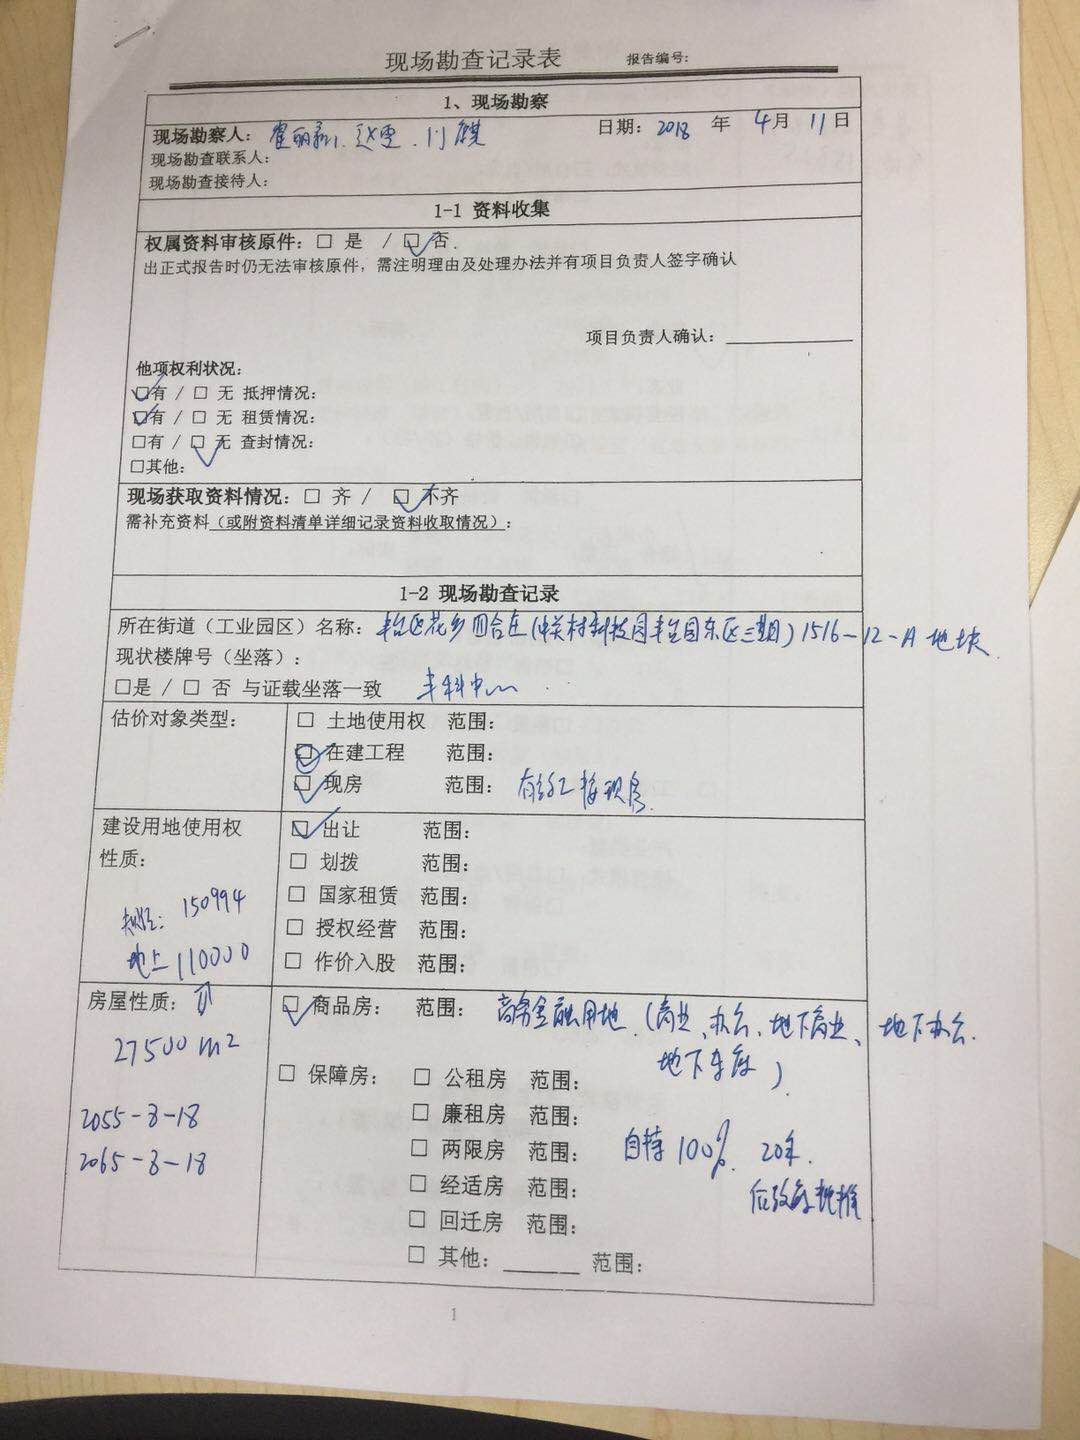 现场勘查记录表 报告编号:
1、现场勘察
现场勘察人: 日期: 2018 年 4月 11日
现场勘查联系人:
现场勘查接待人:
1-1 资料收集
权属资料审核原件: □ 是 / □ 否.
出正式报告时仍无法审核原件，需注明理由及处理办法并有项目负责人签字确认
项目负责人确认:
他项权利状况:
□有 / □ 无 抵押情况:
□有 / □ 无 租赁情况:
□有 / □ 无 查封情况:
□其他:
现场获取资料情况: □ 齐 / □ 不齐
需补充资料(或附资料清单详细记录资料收取情况):
1-2 现场勘查记录
所在街道（工业园区）名称: 丰台区花乡四合庄(中关村科技园丰台园东区三期) 1516-12-A 地块
现状楼牌号（坐落）:
□是 / □ 否 与证载坐落一致 丰科中心
估价对象类型: □ 土地使用权 范围:
□ 在建工程 范围:
□ 现房 范围: 现房
建设用地使用权 □ 出让 范围:
性质: □ 划拨 范围:
□ 国家租赁 范围:
150994 □ 授权经营 范围:
地上 110000 □ 作价入股 范围:
房屋性质: □ 商品房: 范围: 商务金融用地 (商业、办公、地下商业、地下办公.
27500 m2 地下车库)
□ 保障房: □ 公租房 范围:
2055-8-18 □ 廉租房 范围:
2065-8-18 □ 两限房 范围: 自持 100% 20年.
□ 经适房 范围: 政府批准
□ 回迁房 范围:
□ 其他: 范围:
1